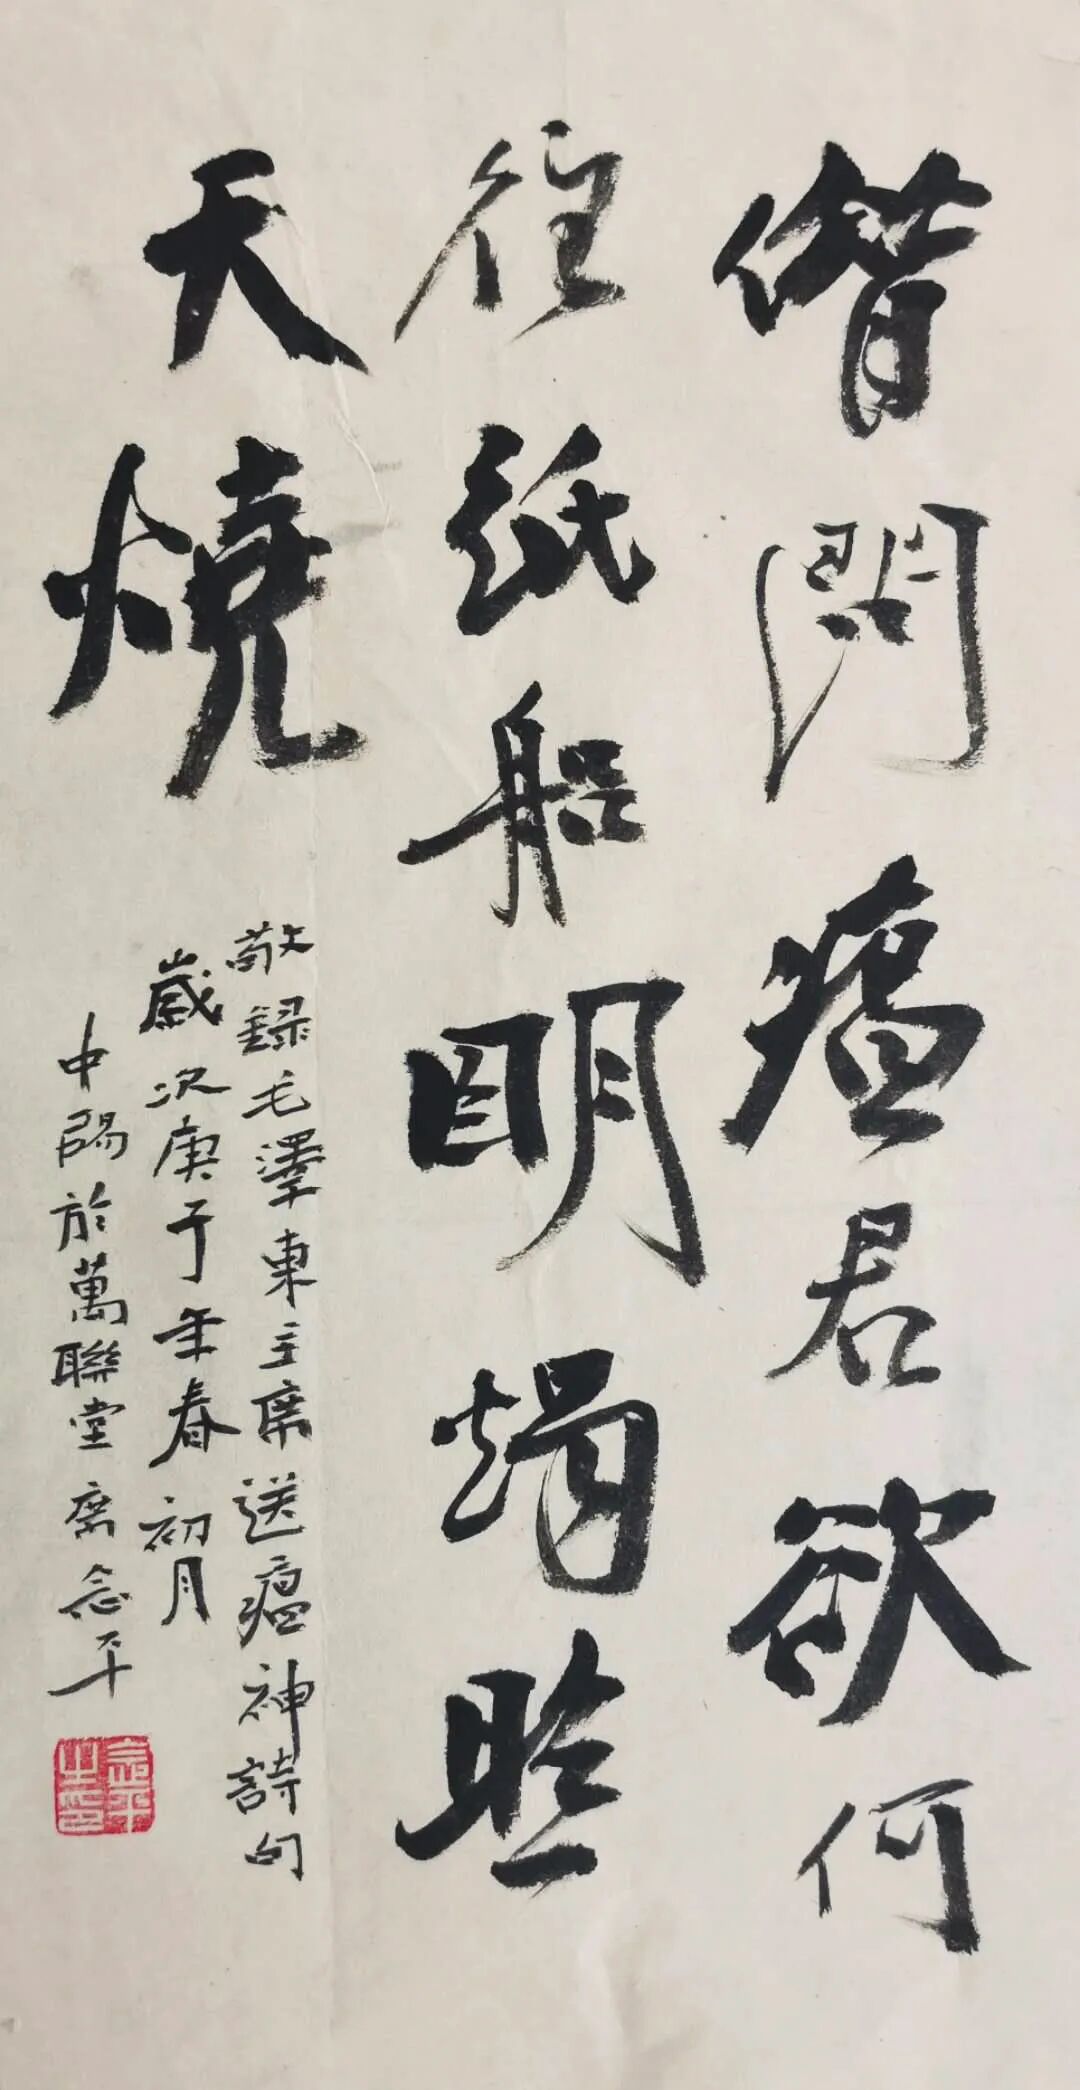 借問瘟君欲何
往纸船明燭照
天燒
敬録毛澤東主席送瘟神詩句
歲次庚子年春初月
中陽於萬聯堂席念平
念平之印